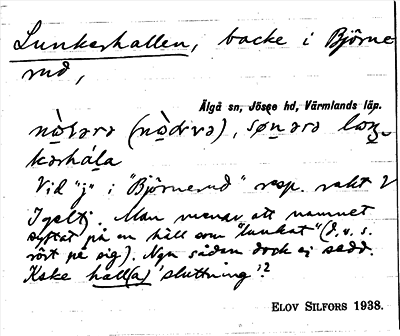 Lunkerhallen, backe i Björne
rud,
Älgå sn, Jösse hd, Värmlands läp.
nò̤rərə (nò̤drə), sø̤nərə loŋ-
kərhála
Vid "j" i "Björnerud" resp. rakt V
Igeltj. Man menar att namnet
syftat på en häll som "lunkat" (d. v. s.
rört på sig). Ngn sådan dock ej sedd.
Kske hall(a) 'sluttning'?
ELOV SILFORS 1938.